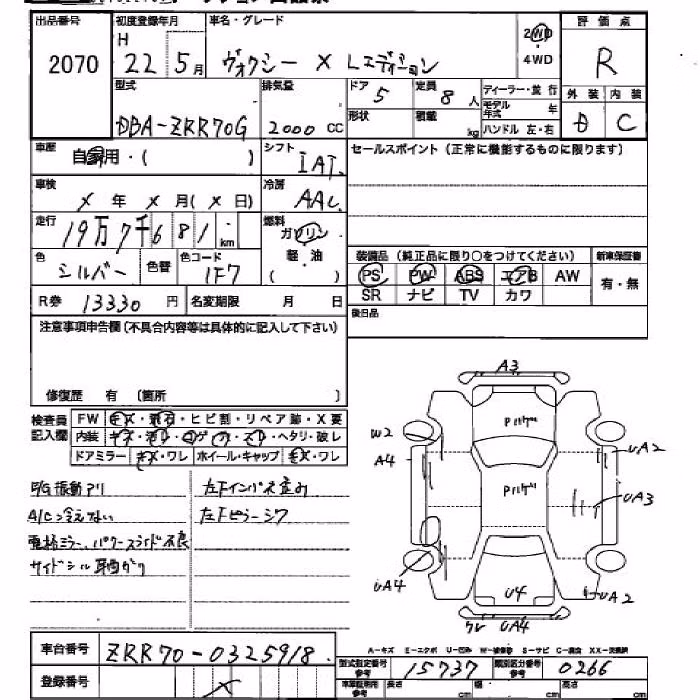 出品番号 初度登録年月 車名・グレード 評価点
2070 H 22 5月 ヴォクシー X Lエディション 2WD 4WD R
型式 排気量 ドア 定員 ディーラー・並行 外装 内装
DBA-ZRR70G 2000 CC 5 8人 モデル年式 年 D C
形状 積載 kg ハンドル 左・右
車歴 自家用・( ) シフト IAT セールスポイント(正常に機能するものに限ります)
車検 X 年 X 月(X 日) 冷房 AAC
走行 19万7千681 km 燃料 ガソリン 軽・油 ( )
色 シルバー 色替 色コード 1F7
装備品(純正品に限り○をつけてください) 新車保証書
PS PW ABS エアB AW 有・無
SR ナビ TV カワ
R券 13330 円 名変期限 月 日
後日品
注意事項申告欄(不具合内容等は具体的に記入して下さい)
修復歴 有 〔箇所 〕
検査員記入欄 FW キズ・飛石・ヒビ割・リペア跡・X要
内装 キズ・汚レ・コゲ・穴・スレ・ヘタリ・破レ
ドアミラー キズ・ワレ ホイール・キャップ キズ・ワレ
E/G振動アリ 左Fインパネ歪み
A/C冷えない 左Fピラーシワ
電格ミラー、パワースライド不良
サイドシル
A3
W2
A4
UA2
UA3
UA4
U4
UA2
ワレ UA4
A-キズ E-エクボ U-凹み W-補修跡 S-サビ C-腐食 XX-交換済
車台番号 ZRR70-0325918
型式指定番号 参考 15737 類別区分番号 参考 0266
登録番号 X
長さ cm 幅 cm 高さ cm